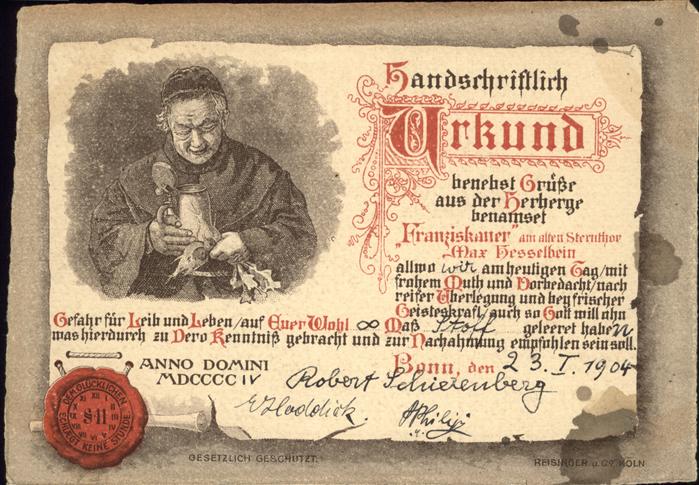 Handschriftlich
Urkund
benebst Grüße
aus der Herberge
benamset
„Franziskaner" am alten Sternthor
Max Hesselbein
allwo wir am heutigen Tag/mit
frohem Muth und Vorbedacht/nach
reifer Überlegung und bey frischer
Geisteskraft/auch so Gott will ohn
Gefahr für Leib und Leben/auf Euer Wohl ∞ Maß Stoff geleeret haben
was hierdurch zu Dero Kenntniß gebracht und zur Nachahmung empfohlen sein soll.
Bonn, den 23. I. 1904
ANNO DOMINI
MDCCCCIV
Robert Schierenberg
DEM GLÜCKLICHEN
SCHLÄGT KEINE STUNDE
§ 11
GESETZLICH GESCHÜTZT.
REISINGER u. Co. KÖLN